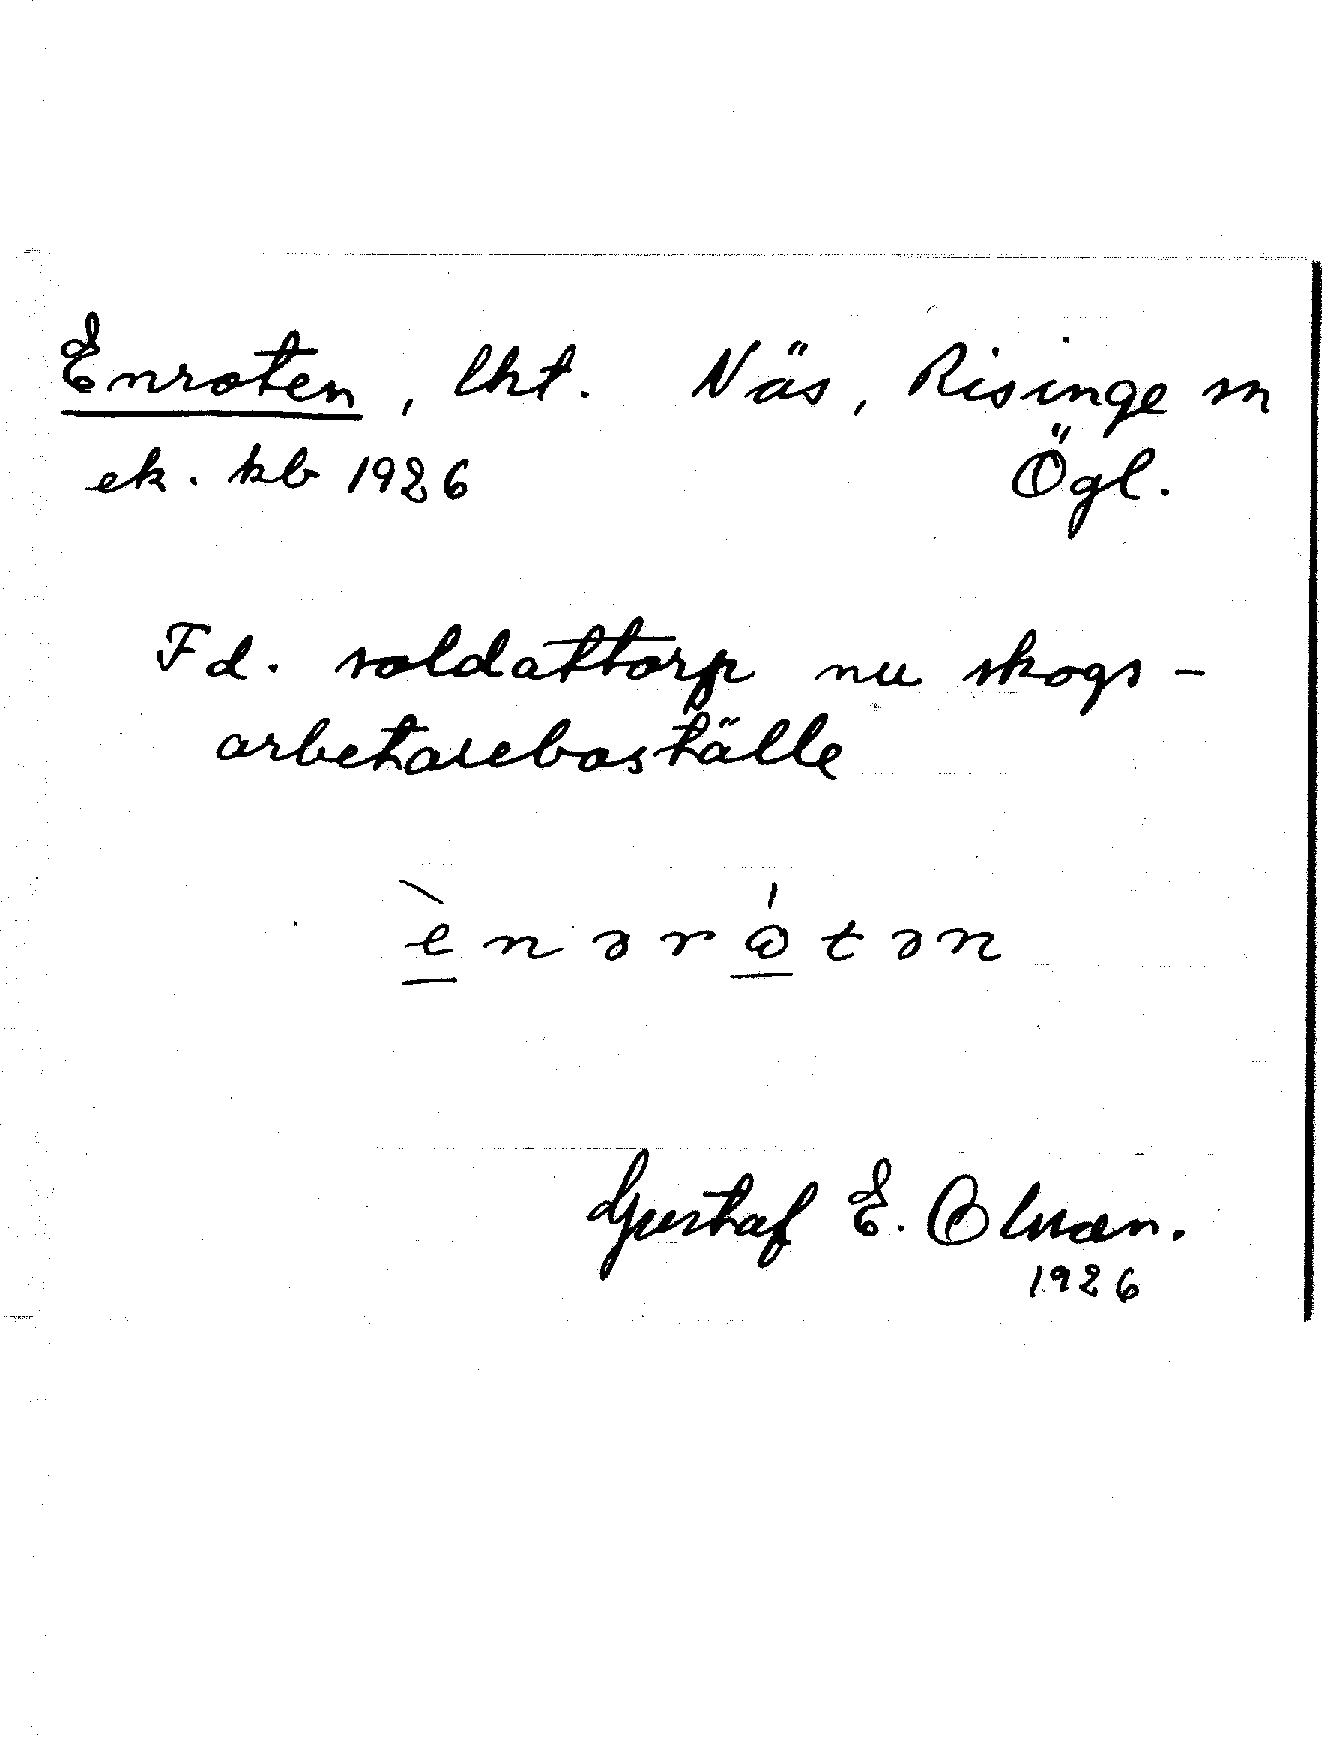 Enroten, lht. Näs, Risinge sn
ek. kb 1926 Ögl.
Fd. soldattorp nu skogs-
arbetareboställe
è̱nəró̱tən
Gustaf E. Olsson.
1926